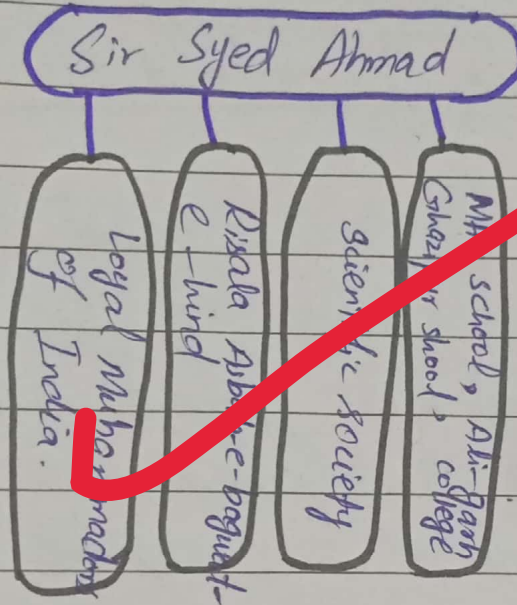 Sir Syed Ahmad
Loyal Muhammadans
of India.
Risala Asbab-e-bagwat-
e-hind
Scientific society
school, Ali-garh
Ghazipur shool, college